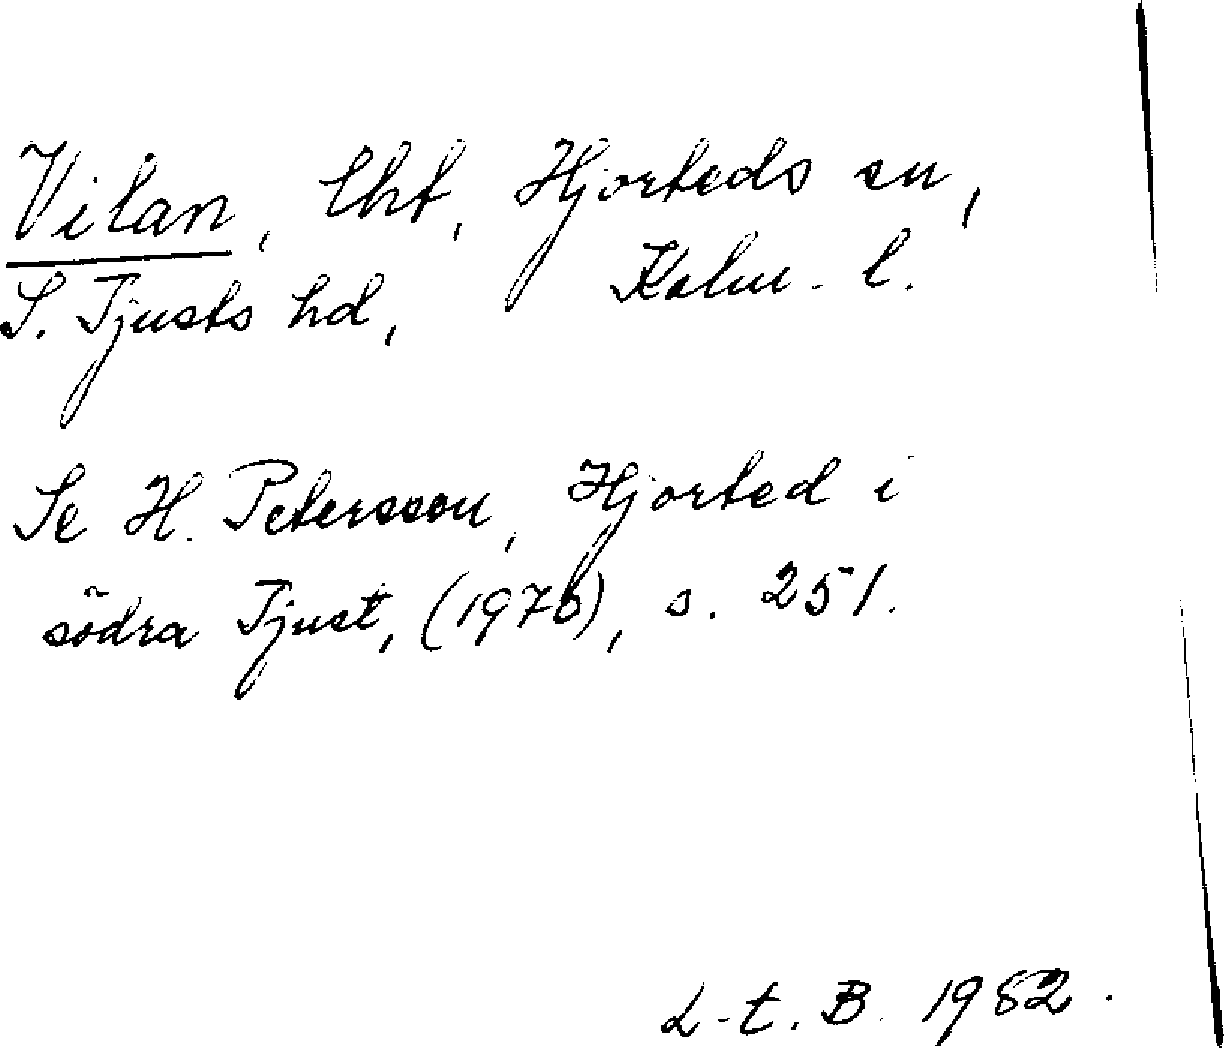 Vilan, lht, Hjorteds sn,
S. Tjusts hd, Kalm. l.
Se H. Petersson, Hjorted i
södra Tjust, (1976), s. 251.
L-t. B. 1982.